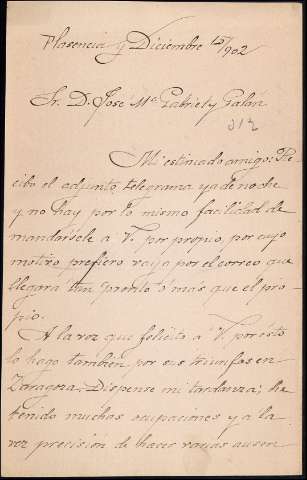 Plasencia y Diciembre 15/902
Sr. D. José Mª Gabriel y Galán
312
Mi estimado amigo: Re-
cibo el adjunto telegrama ya de noche
y no hay por lo mismo facilidad de
mandársele a V. por propio, por cuyo
motivo prefiero vaya por el correo que
llegara tan pronto ó mas que el pro-
pio.
A la vez que felicito a V. por ésto
lo hago también por sus triunfos en
Zaragoza. Dispense mi tardanza; he
tenido muchas ocupaciones y a la
vez precisión de hacer varias ausen-